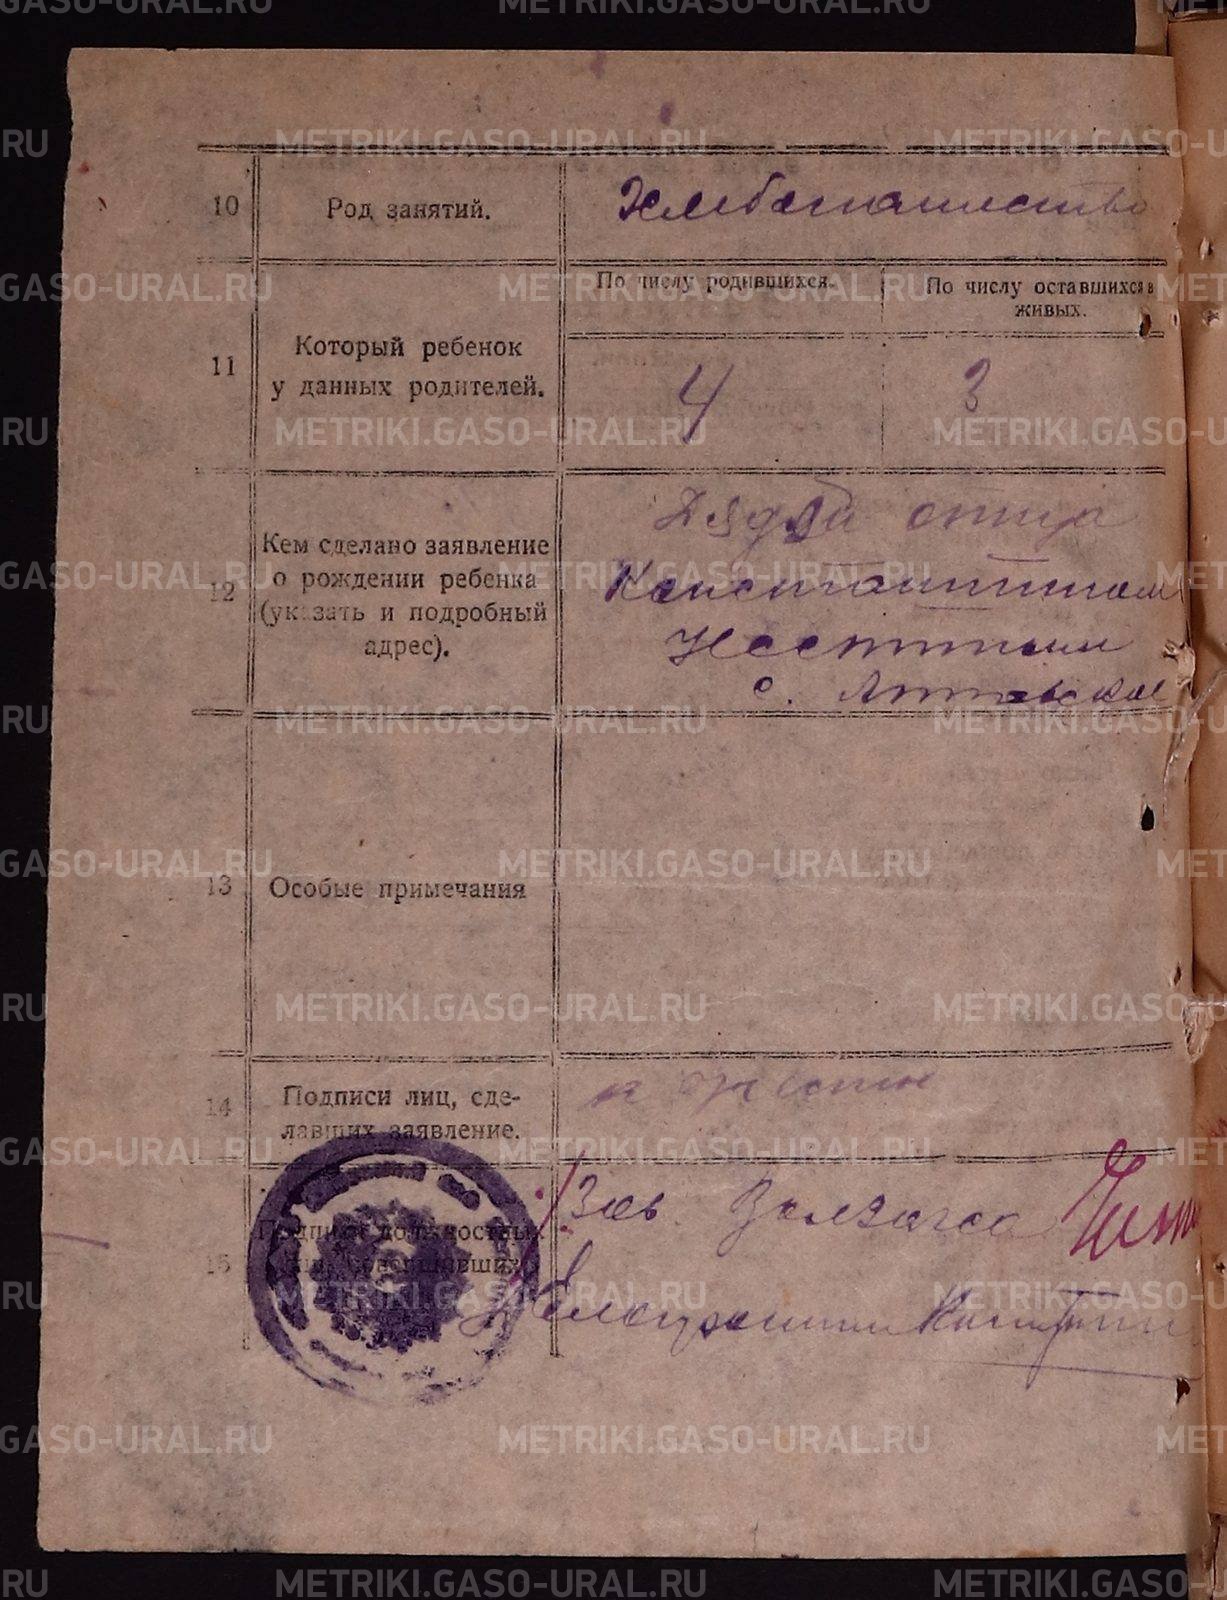 10 Род занятий. Хлебопашество
11 Который ребенок у данных родителей.
По числу родившихся. По числу оставшихся в живых.
4 3
12 Кем сделано заявление
о рождении ребенка
(указать и подробный
адрес).
Дядей отца
Константином
с.
13 Особые примечания
14 Подписи лиц, сде-
лавших заявление.
15 Подписи должностных
лиц, совершивших
Зав. Волзагса
Делопроизв
METRIKI.GASO-URAL.RU